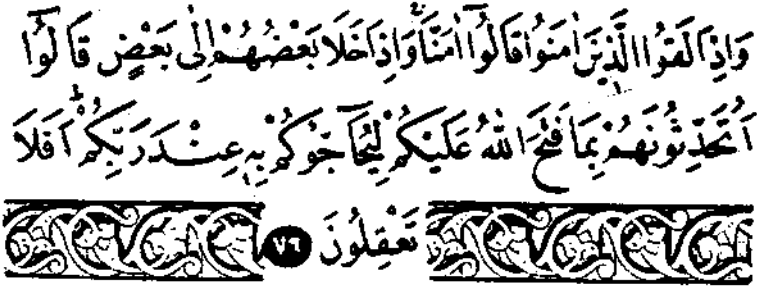 وَاِذَا لَقُوا الَّذِيْنَ اٰمَنُوْا قَالُوْٓا اٰمَنَّا ۚ وَاِذَا خَلَا بَعْضُهُمْ اِلٰى بَعْضٍ قَالُوْٓا
اَتُحَدِّثُوْنَهُمْ بِمَا فَتَحَ اللّٰهُ عَلَيْكُمْ لِيُحَآجُّوْكُمْ بِهٖ عِنْدَ رَبِّكُمْ ؕ اَفَلَا
تَعْقِلُوْنَ ٧٦